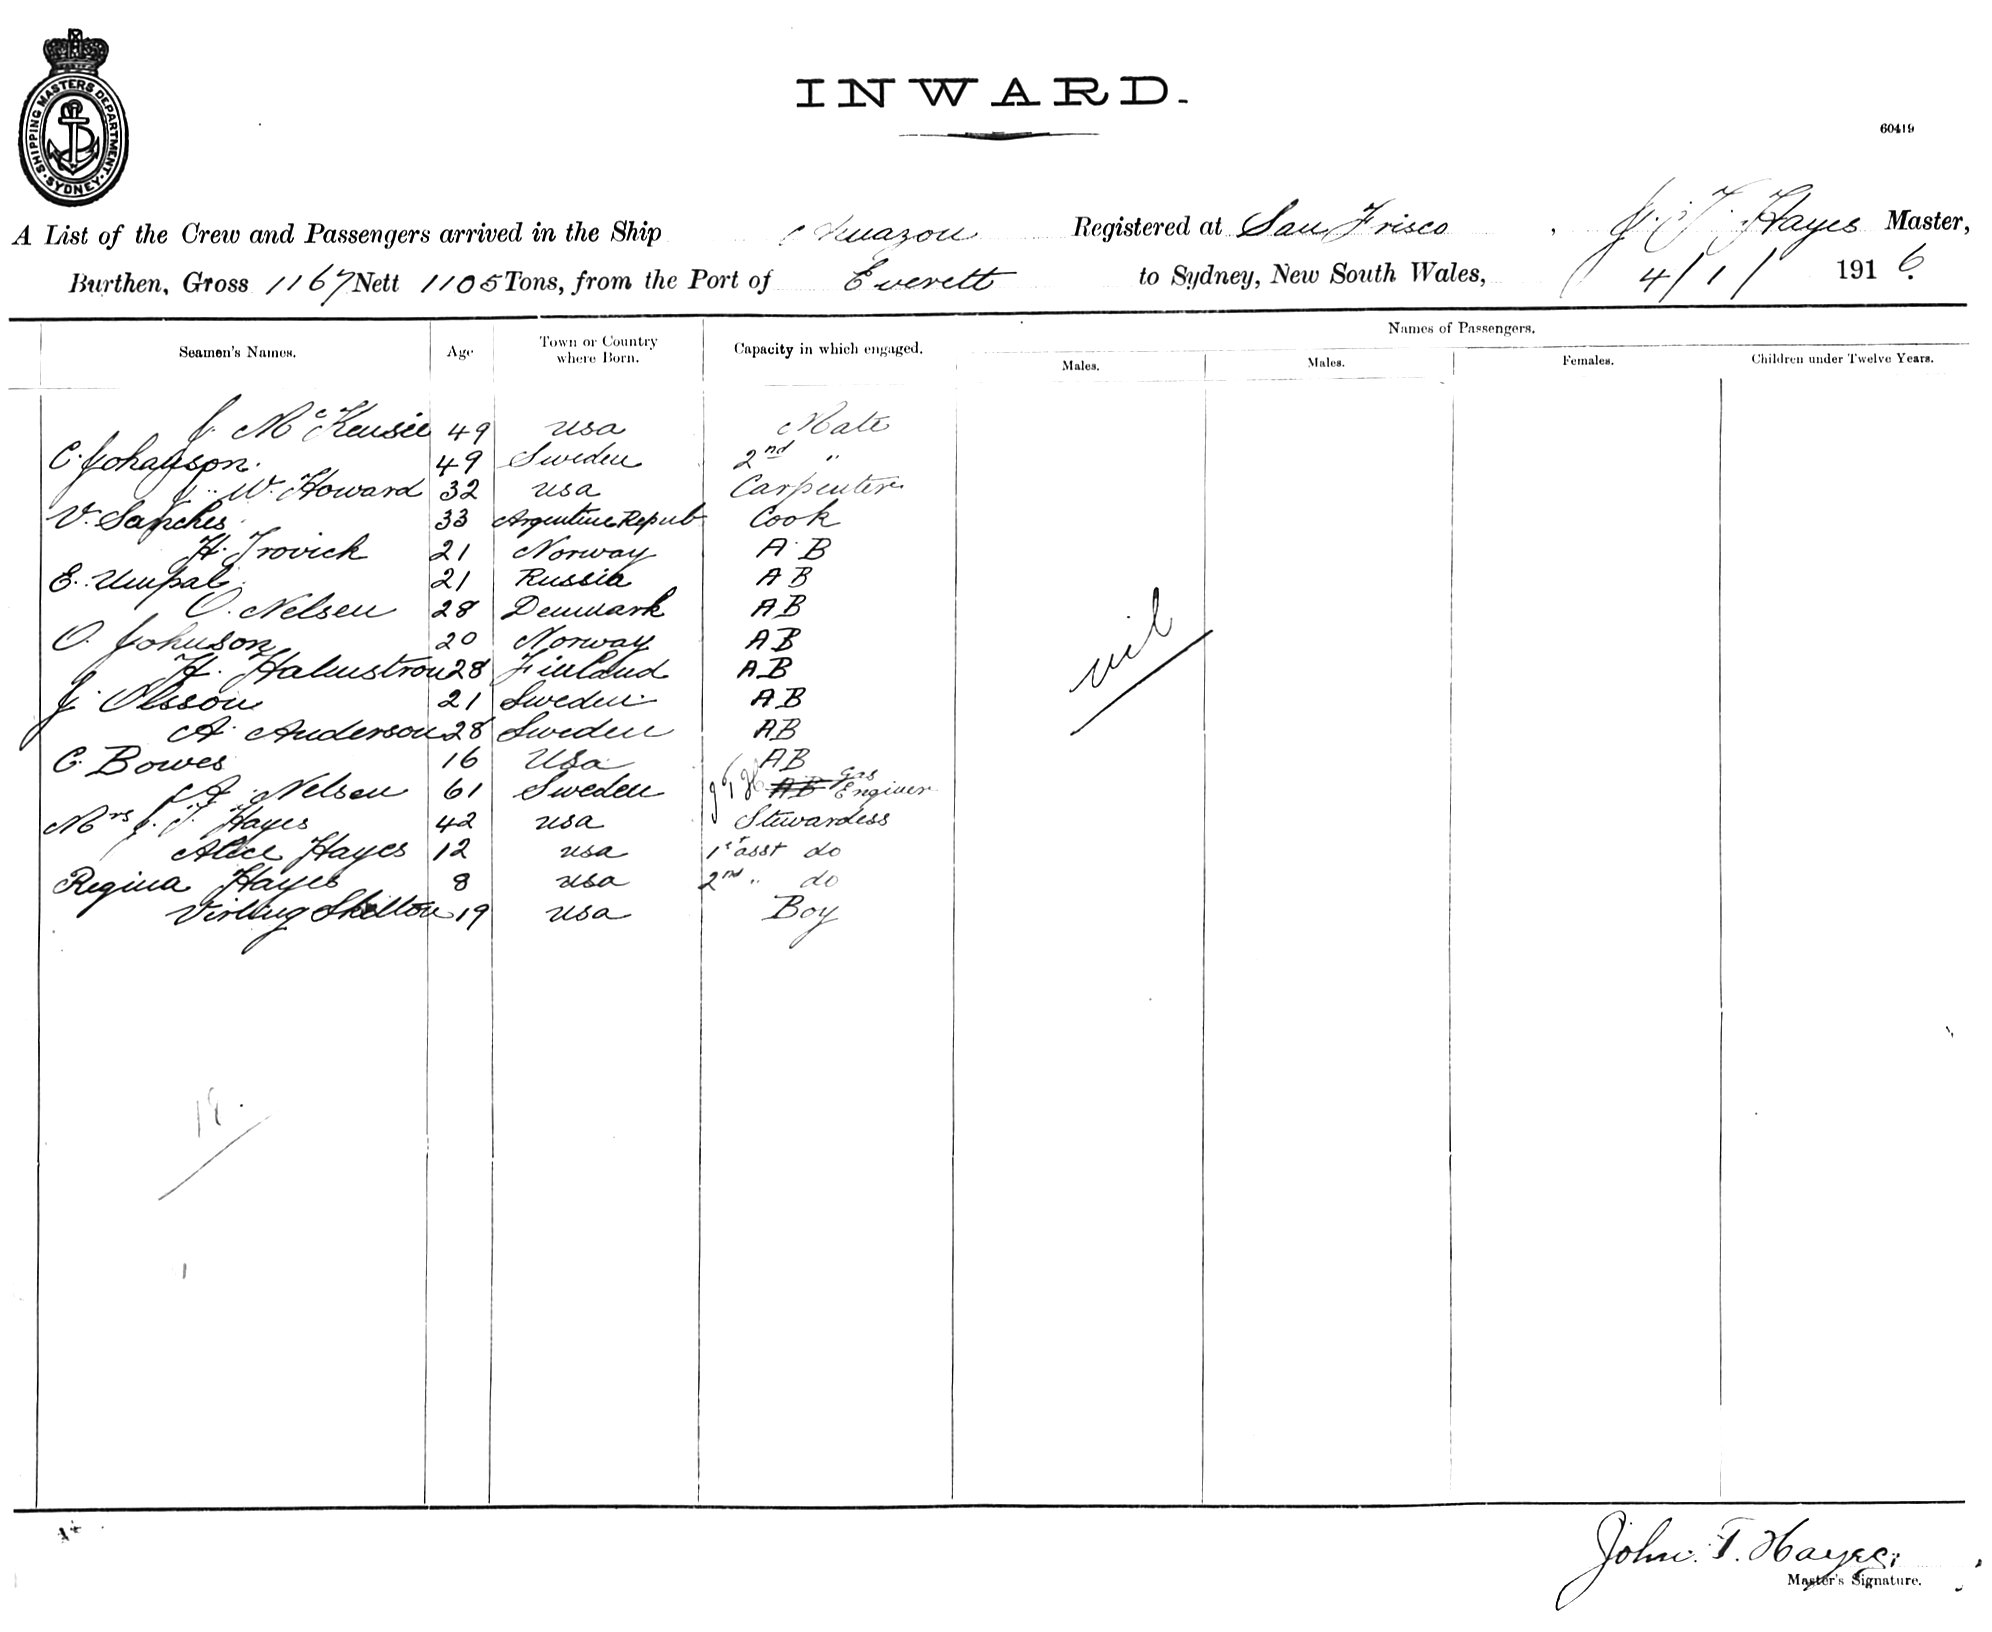 SHIPPING MASTERS DEPARTMENT
SYDNEY
INWARD.
60419
A List of the Crew and Passengers arrived in the Ship Amazon Registered at San Frisco, J. T. Hayes Master,
Burthen, Gross 1167 Nett 1105 Tons, from the Port of Everett to Sydney, New South Wales, 4/1/1916
Names of Passengers.
Seamen's Names. Age Town or Country where Born. Capacity in which engaged. Males. Males. Females. Children under Twelve Years.
J. McKensie 49 USA Mate
C. Johanson 49 Sweden 2nd "
J. W. Howard 32 USA Carpenter
V. Sanches 33 Argentine Repub Cook
H. Trovick 21 Norway A B
E. Umpal 21 Russia A B
O. Nelsen 28 Denmark A B
O. Johnson 20 Norway A B
H. Halmstrom 28 Finland A B
J. Olsson 21 Sweden A B
A. Anderson 28 Sweden A B
C. Bowes 16 USA A B
A. Nelsen 61 Sweden JTH AB Gas Enginer
Mrs J. T. Hayes 42 USA Stewardess
Alice Hayes 12 USA 1st asst do
Regina Hayes 8 USA 2nd " do
Virling Skelton 19 USA Boy
nil
18.
John. T. Hayes.
Master's Signature.